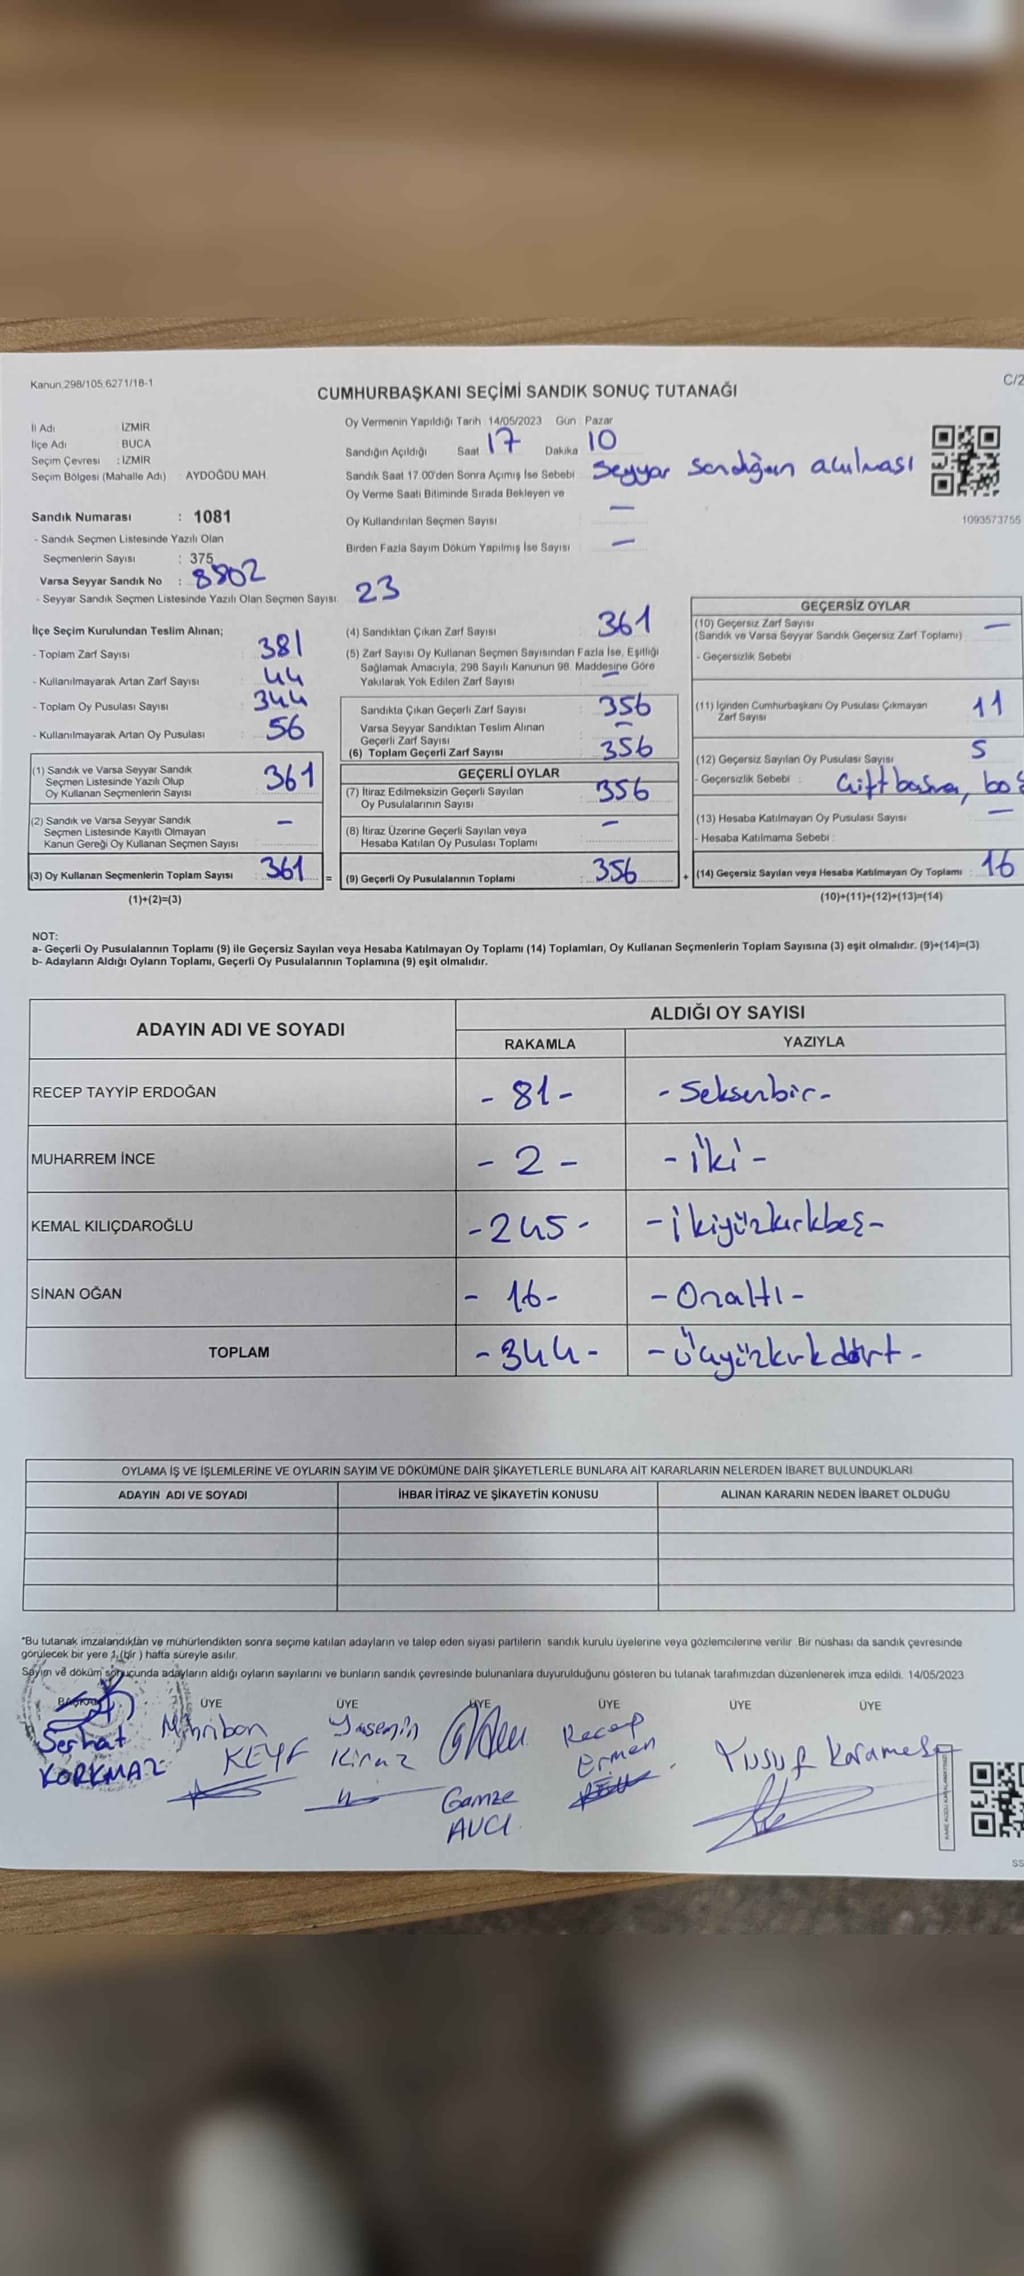 Kanun,298/105,6271/18-1
C/2
CUMHURBAŞKANI SEÇİMİ SANDIK SONUÇ TUTANAĞI
İl Adı : İZMİR
İlçe Adı : BUCA
Seçim Çevresi : İZMİR
Seçim Bölgesi (Mahalle Adı) : AYDOĞDU MAH.
Sandık Numarası : 1081
- Sandık Seçmen Listesinde Yazılı Olan
Seçmenlerin Sayısı : 375
Varsa Seyyar Sandık No : 8802
- Seyyar Sandık Seçmen Listesinde Yazılı Olan Seçmen Sayısı: 23
Oy Vermenin Yapıldığı Tarih : 14/05/2023 Gün : Pazar
Sandığın Açıldığı Saat 17 Dakika 10
Sandık Saat 17.00'den Sonra Açımış İse Sebebi Seyyar Sandığın açılması
Oy Verme Saati Bitiminde Sırada Bekleyen ve
Oy Kullandırılan Seçmen Sayısı —
Birden Fazla Sayım Döküm Yapılmış İse Sayısı : —
1093573755
İlçe Seçim Kurulundan Teslim Alınan;
- Toplam Zarf Sayısı : 381
- Kullanılmayarak Artan Zarf Sayısı : 44
- Toplam Oy Pusulası Sayısı : 344
- Kullanılmayarak Artan Oy Pusulası : 56
(1) Sandık ve Varsa Seyyar Sandık
Seçmen Listesinde Yazılı Olup
Oy Kullanan Seçmenlerin Sayısı : 361
(2) Sandık ve Varsa Seyyar Sandık
Seçmen Listesinde Kayıtlı Olmayan
Kanun Gereği Oy Kullanan Seçmen Sayısı : —
(3) Oy Kullanan Seçmenlerin Toplam Sayısı : 361 =
(1)+(2)=(3)
(4) Sandıktan Çıkan Zarf Sayısı : 361
(5) Zarf Sayısı Oy Kullanan Seçmen Sayısından Fazla İse, Eşitliği
Sağlamak Amacıyla; 298 Sayılı Kanunun 98. Maddesine Göre
Yakılarak Yok Edilen Zarf Sayısı : —
Sandıkta Çıkan Geçerli Zarf Sayısı : 356
Varsa Seyyar Sandıktan Teslim Alınan
Geçerli Zarf Sayısı : —
(6) Toplam Geçerli Zarf Sayısı : 356
GEÇERLİ OYLAR
(7) İtiraz Edilmeksizin Geçerli Sayılan
Oy Pusulalarının Sayısı : 356
(8) İtiraz Üzerine Geçerli Sayılan veya
Hesaba Katılan Oy Pusulası Toplamı : —
(9) Geçerli Oy Pusulalarının Toplamı : 356 +
GEÇERSİZ OYLAR
(10) Geçersiz Zarf Sayısı —
(Sandık ve Varsa Seyyar Sandık Geçersiz Zarf Toplamı) :
- Geçersizlik Sebebi :
(11) İçinden Cumhurbaşkanı Oy Pusulası Çıkmayan
Zarf Sayısı : 11
(12) Geçersiz Sayılan Oy Pusulası Sayısı : 5
- Geçersizlik Sebebi : Çift basma, boş
(13) Hesaba Katılmayan Oy Pusulası Sayısı : —
- Hesaba Katılmama Sebebi :
(14) Geçersiz Sayılan veya Hesaba Katılmayan Oy Toplamı : 16
(10)+(11)+(12)+(13)=(14)
NOT:
a- Geçerli Oy Pusulalarının Toplamı (9) ile Geçersiz Sayılan veya Hesaba Katılmayan Oy Toplamı (14) Toplamları, Oy Kullanan Seçmenlerin Toplam Sayısına (3) eşit olmalıdır. (9)+(14)=(3)
b- Adayların Aldığı Oyların Toplamı, Geçerli Oy Pusulalarının Toplamına (9) eşit olmalıdır.
ADAYIN ADI VE SOYADI ALDIĞI OY SAYISI
RAKAMLA YAZIYLA
RECEP TAYYİP ERDOĞAN - 81 - - Seksenbir -
MUHARREM İNCE - 2 - - İki -
KEMAL KILIÇDAROĞLU - 245 - - İkiyüzkırkbeş -
SİNAN OĞAN - 16 - - Onaltı -
TOPLAM - 344 - - Üçyüzkırkdört -
OYLAMA İŞ VE İŞLEMLERİNE VE OYLARIN SAYIM VE DÖKÜMÜNE DAİR ŞİKAYETLERLE BUNLARA AİT KARARLARIN NELERDEN İBARET BULUNDUKLARI
ADAYIN ADI VE SOYADI İHBAR İTİRAZ VE ŞİKAYETİN KONUSU ALINAN KARARIN NEDEN İBARET OLDUĞU
*Bu tutanak imzalandıktan ve mühürlendikten sonra seçime katılan adayların ve talep eden siyasi partilerin sandık kurulu üyelerine veya gözlemcilerine verilir. Bir nüshası da sandık çevresinde
görülecek bir yere 1 (bir ) hafta süreyle asılır.
Sayım ve döküm sonucunda adayların aldığı oyların sayılarını ve bunların sandık çevresinde bulunanlara duyurulduğunu gösteren bu tutanak tarafımızdan düzenlenerek imza edildi. 14/05/2023
BAŞKAN ÜYE ÜYE ÜYE ÜYE ÜYE ÜYE
Serhat KORKMAZ
Mihriban KEYF
Yasemin Kiraz
Gamze AVCI
Recep Ermen
Yusuf Karameşe
SS